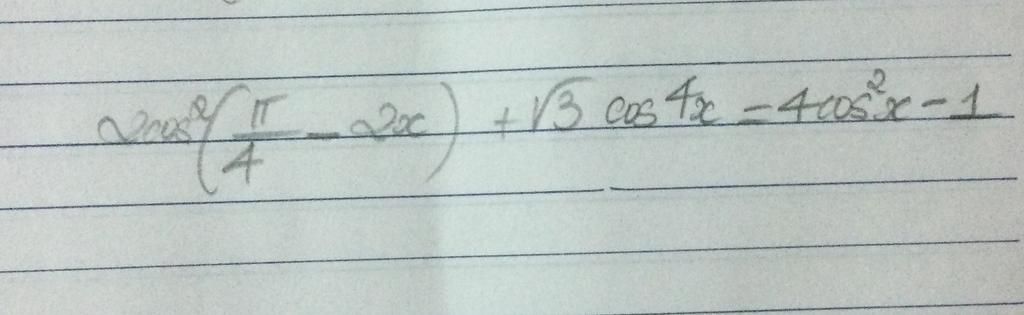 2cos²(π/4 - 2x) + √3 cos 4x = 4cos²x - 1